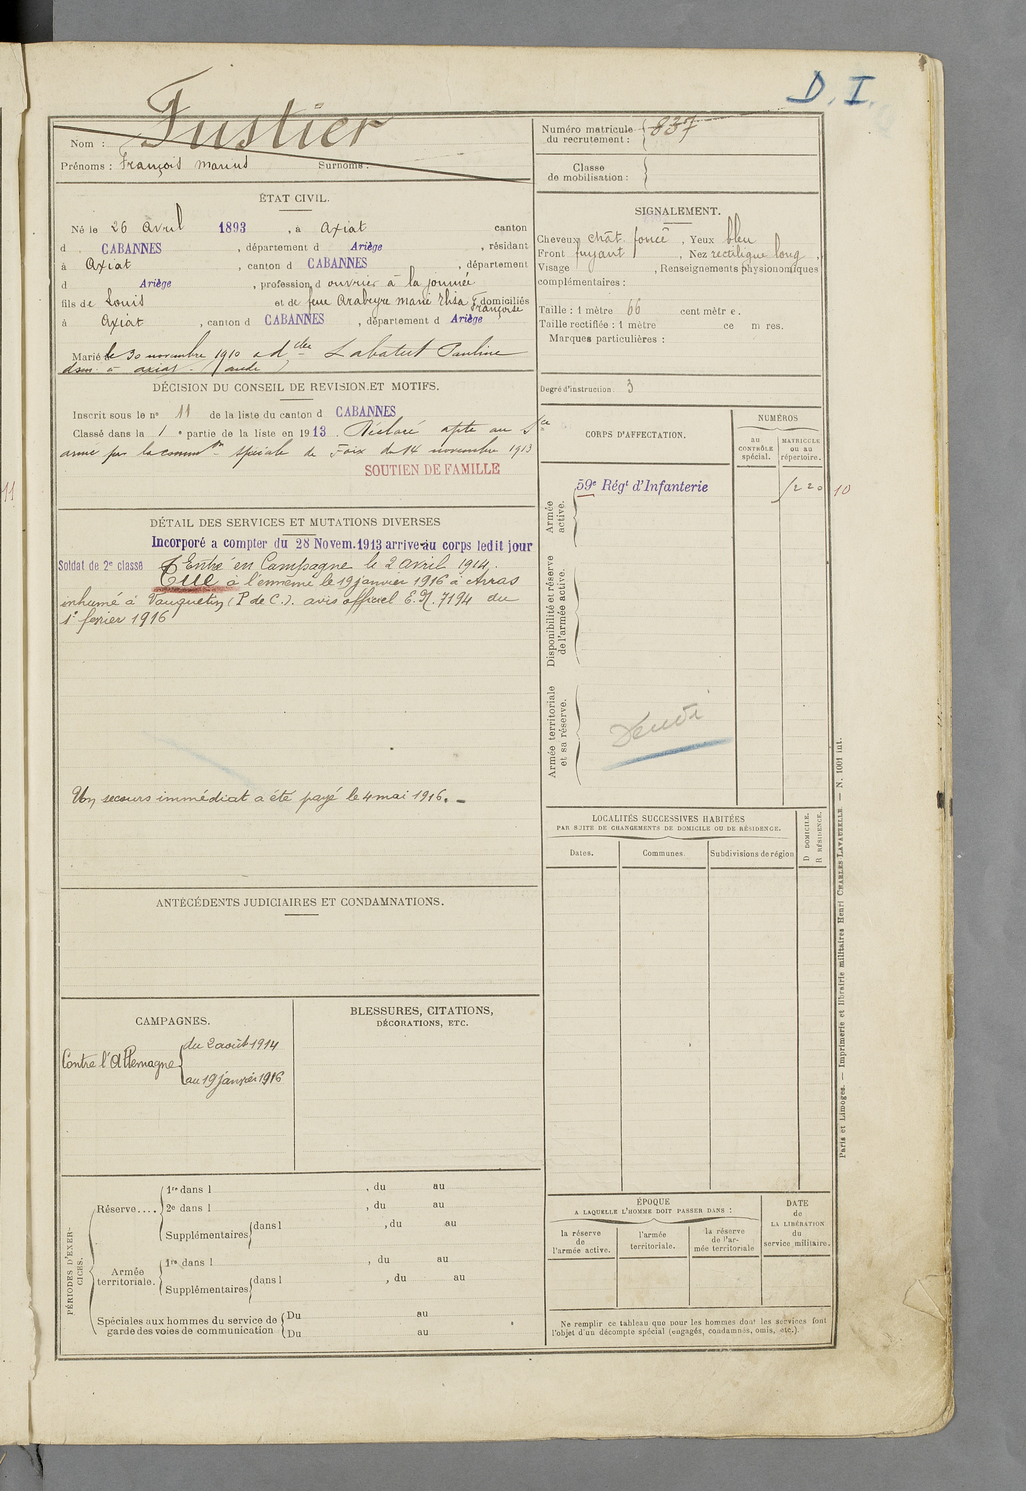 D. I.
Fustier
Nom :
Prénoms : François Marius Surnoms :
Numéro matricule du recrutement : 837
Classe de mobilisation :
ÉTAT CIVIL.
Né le 26 Avril 1893, à Axiat canton
d CABANNES, département d Ariège, résidant
à Axiat, canton d CABANNES, département
d Ariège, profession d ouvrier à la journée
fils de Louis et de feue Arabeyre Marie Elisa Françoise domiciliés
à Axiat, canton d CABANNES, département d Ariège
Marié le 30 novembre 1910 a dlle Labatut Pauline
dom. à axiat. (aude)
SIGNALEMENT.
Cheveux chât. foncé, Yeux bleu
Front fuyant, Nez rectiligne long,
Visage , Renseignements physionomiques
complémentaires :
Taille : 1 mètre 66 centimètre.
Taille rectifiée : 1 mètre ce m res.
Marques particulières :
Degré d'instruction. 3
DÉCISION DU CONSEIL DE REVISION ET MOTIFS.
Inscrit sous le n° 11 de la liste du canton d CABANNES
Classé dans la 1e partie de la liste en 1913. Déclaré apte au Sce
armé par la common spéciale de Foix du 14 novembre 1913
SOUTIEN DE FAMILLE
CORPS D'AFFECTATION.
NUMÉROS
au CONTRÔLE spécial.
MATRICULE ou au répertoire.
Armée active.
59e Régt d'Infanterie
220
10
11
Disponibilité et réserve de l'armée active.
Armée territoriale et sa réserve.
DÉTAIL DES SERVICES ET MUTATIONS DIVERSES
Incorporé a compter du 28 Novem. 1913 arrive au corps ledit jour
Soldat de 2e classe Entré en Campagne le 2 avril 1914.
Tué à l'ennemi le 19 janvier 1916 à Arras
inhumé à Vauquetin (P de C.). avis officiel E.N. 7194 du
1r fevrier 1916
Un secours immédiat a été payé le 4 mai 1916. -
LOCALITÉS SUCCESSIVES HABITÉES
PAR SUITE DE CHANGEMENTS DE DOMICILE OU DE RÉSIDENCE.
D DOMICILE.
R RÉSIDENCE.
Dates.
Communes.
Subdivisions de région
ANTÉCÉDENTS JUDICIAIRES ET CONDAMNATIONS.
CAMPAGNES.
Contre l'Allemagne { du 2 août 1914
au 19 janvier 1916
BLESSURES, CITATIONS,
DÉCORATIONS, ETC.
PÉRIODES D'EXERCICES.
Réserve....
1re dans l , du au
2e dans l , du au
Supplémentaires { dans l , du au
Armée territoriale.
1re dans l , du au
Supplémentaires { dans l , du au
Spéciales aux hommes du service de garde des voies de communication
Du au
Du au
ÉPOQUE
A LAQUELLE L'HOMME DOIT PASSER DANS :
la réserve de l'armée active.
l'armée territoriale.
la réserve de l'armée territoriale
DATE de LA LIBÉRATION du service militaire.
Ne remplir ce tableau que pour les hommes dont les services font
l'objet d'un décompte spécial (engagés, condamnés, omis, etc.).
Paris et Limoges. — Imprimerie et librairie militaires Henri CHARLES-LAVAUZELLE. — N. 1001 int.